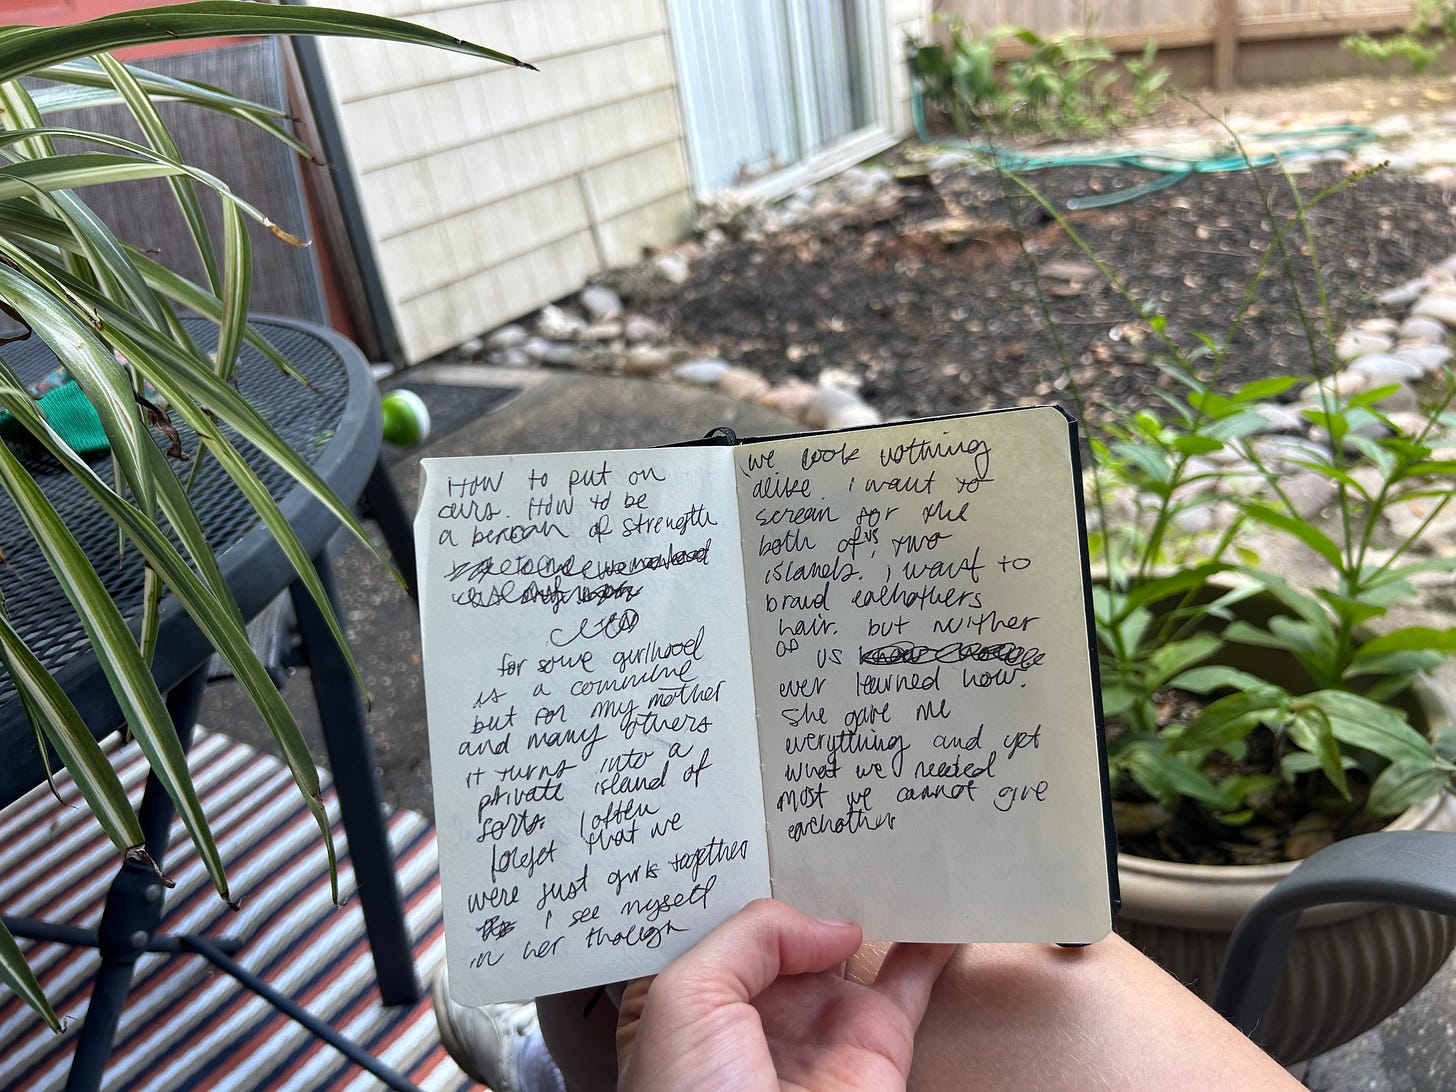 HOW to put on
airs. HOW to be
a beacon of strength
for some girlhood
is a commune
but for my mother
and many others
it turns into a
private island of
sorts. I often
forget that we
were just girls together
I see myself
in her though
we look nothing
alike. i want to
scream for the
both of us, two
islands. i want to
braid eachothers
hair. but neither
of us
ever learned how.
She gave me
everything and yet
what we needed
most we cannot give
eachother